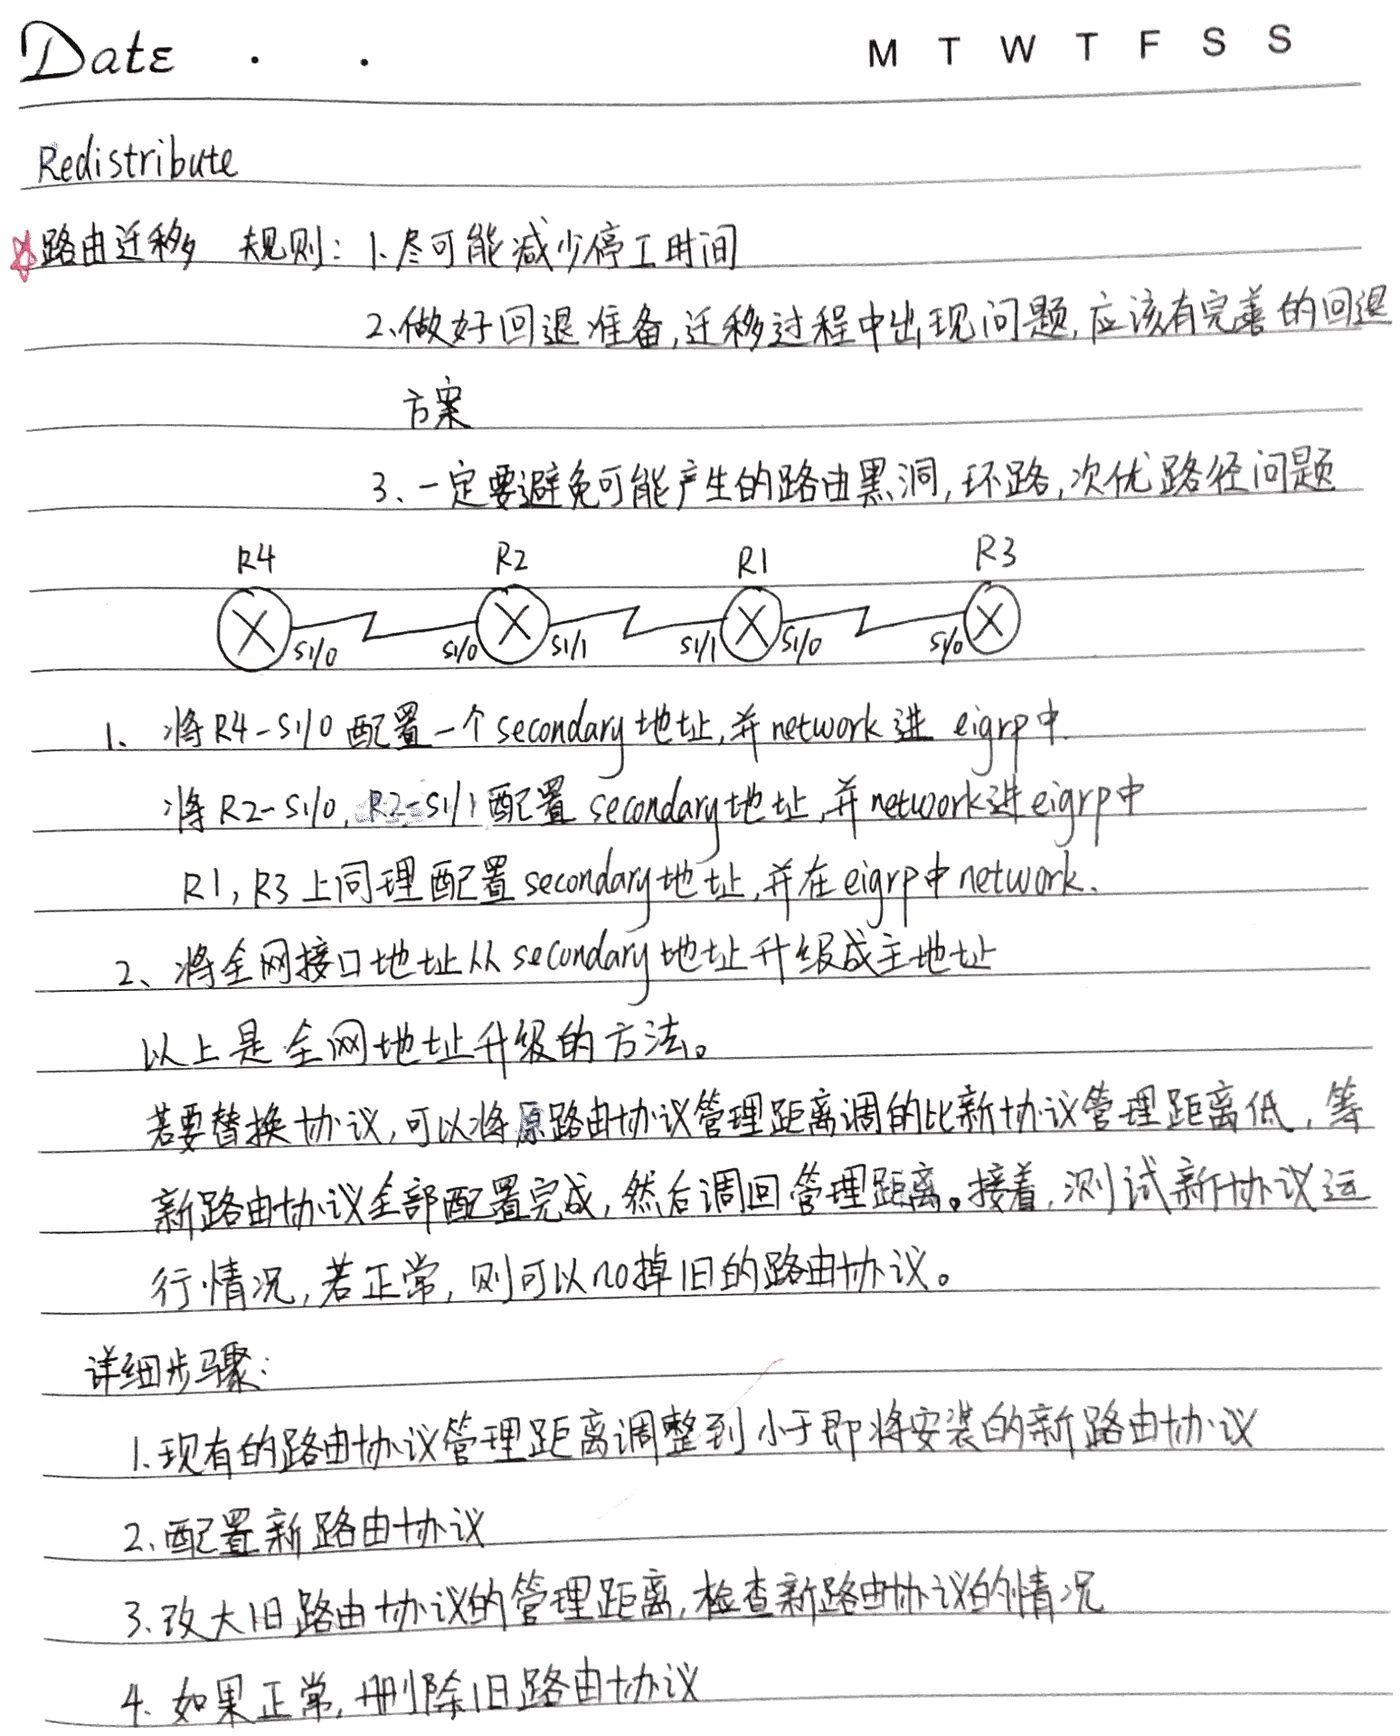 Date . .
M T W T F S S
Redistribute
☆路由迁移 规则: 1.尽可能减少停工时间
2.做好回退准备,迁移过程中出现问题,应该有完善的回退
方案
3、一定要避免可能产生的路由黑洞,环路,次优路径问题
R4 R2 R1 R3
S1/0 S1/0 S1/1 S1/1 S1/0 S1/0
1、将R4-S1/0配置一个secondary地址,并network进 eigrp中.
将R2-S1/0, R2-S1/1配置 secondary地址,并network进eigrp中
R1, R3上同理配置secondary地址,并在eigrp中network.
2、将全网接口地址从secondary地址升级成主地址
以上是全网地址升级的方法。
若要替换协议,可以将原路由协议管理距离调的比新协议管理距离低,等
新路由协议全部配置完成,然后调回管理距离。接着,测试新协议运
行情况,若正常,则可以no掉旧的路由协议。
详细步骤:
1.现有的路由协议管理距离调整到小于即将安装的新路由协议
2.配置新路由协议
3.改大旧路由协议的管理距离,检查新路由协议的情况
4.如果正常,删除旧路由协议